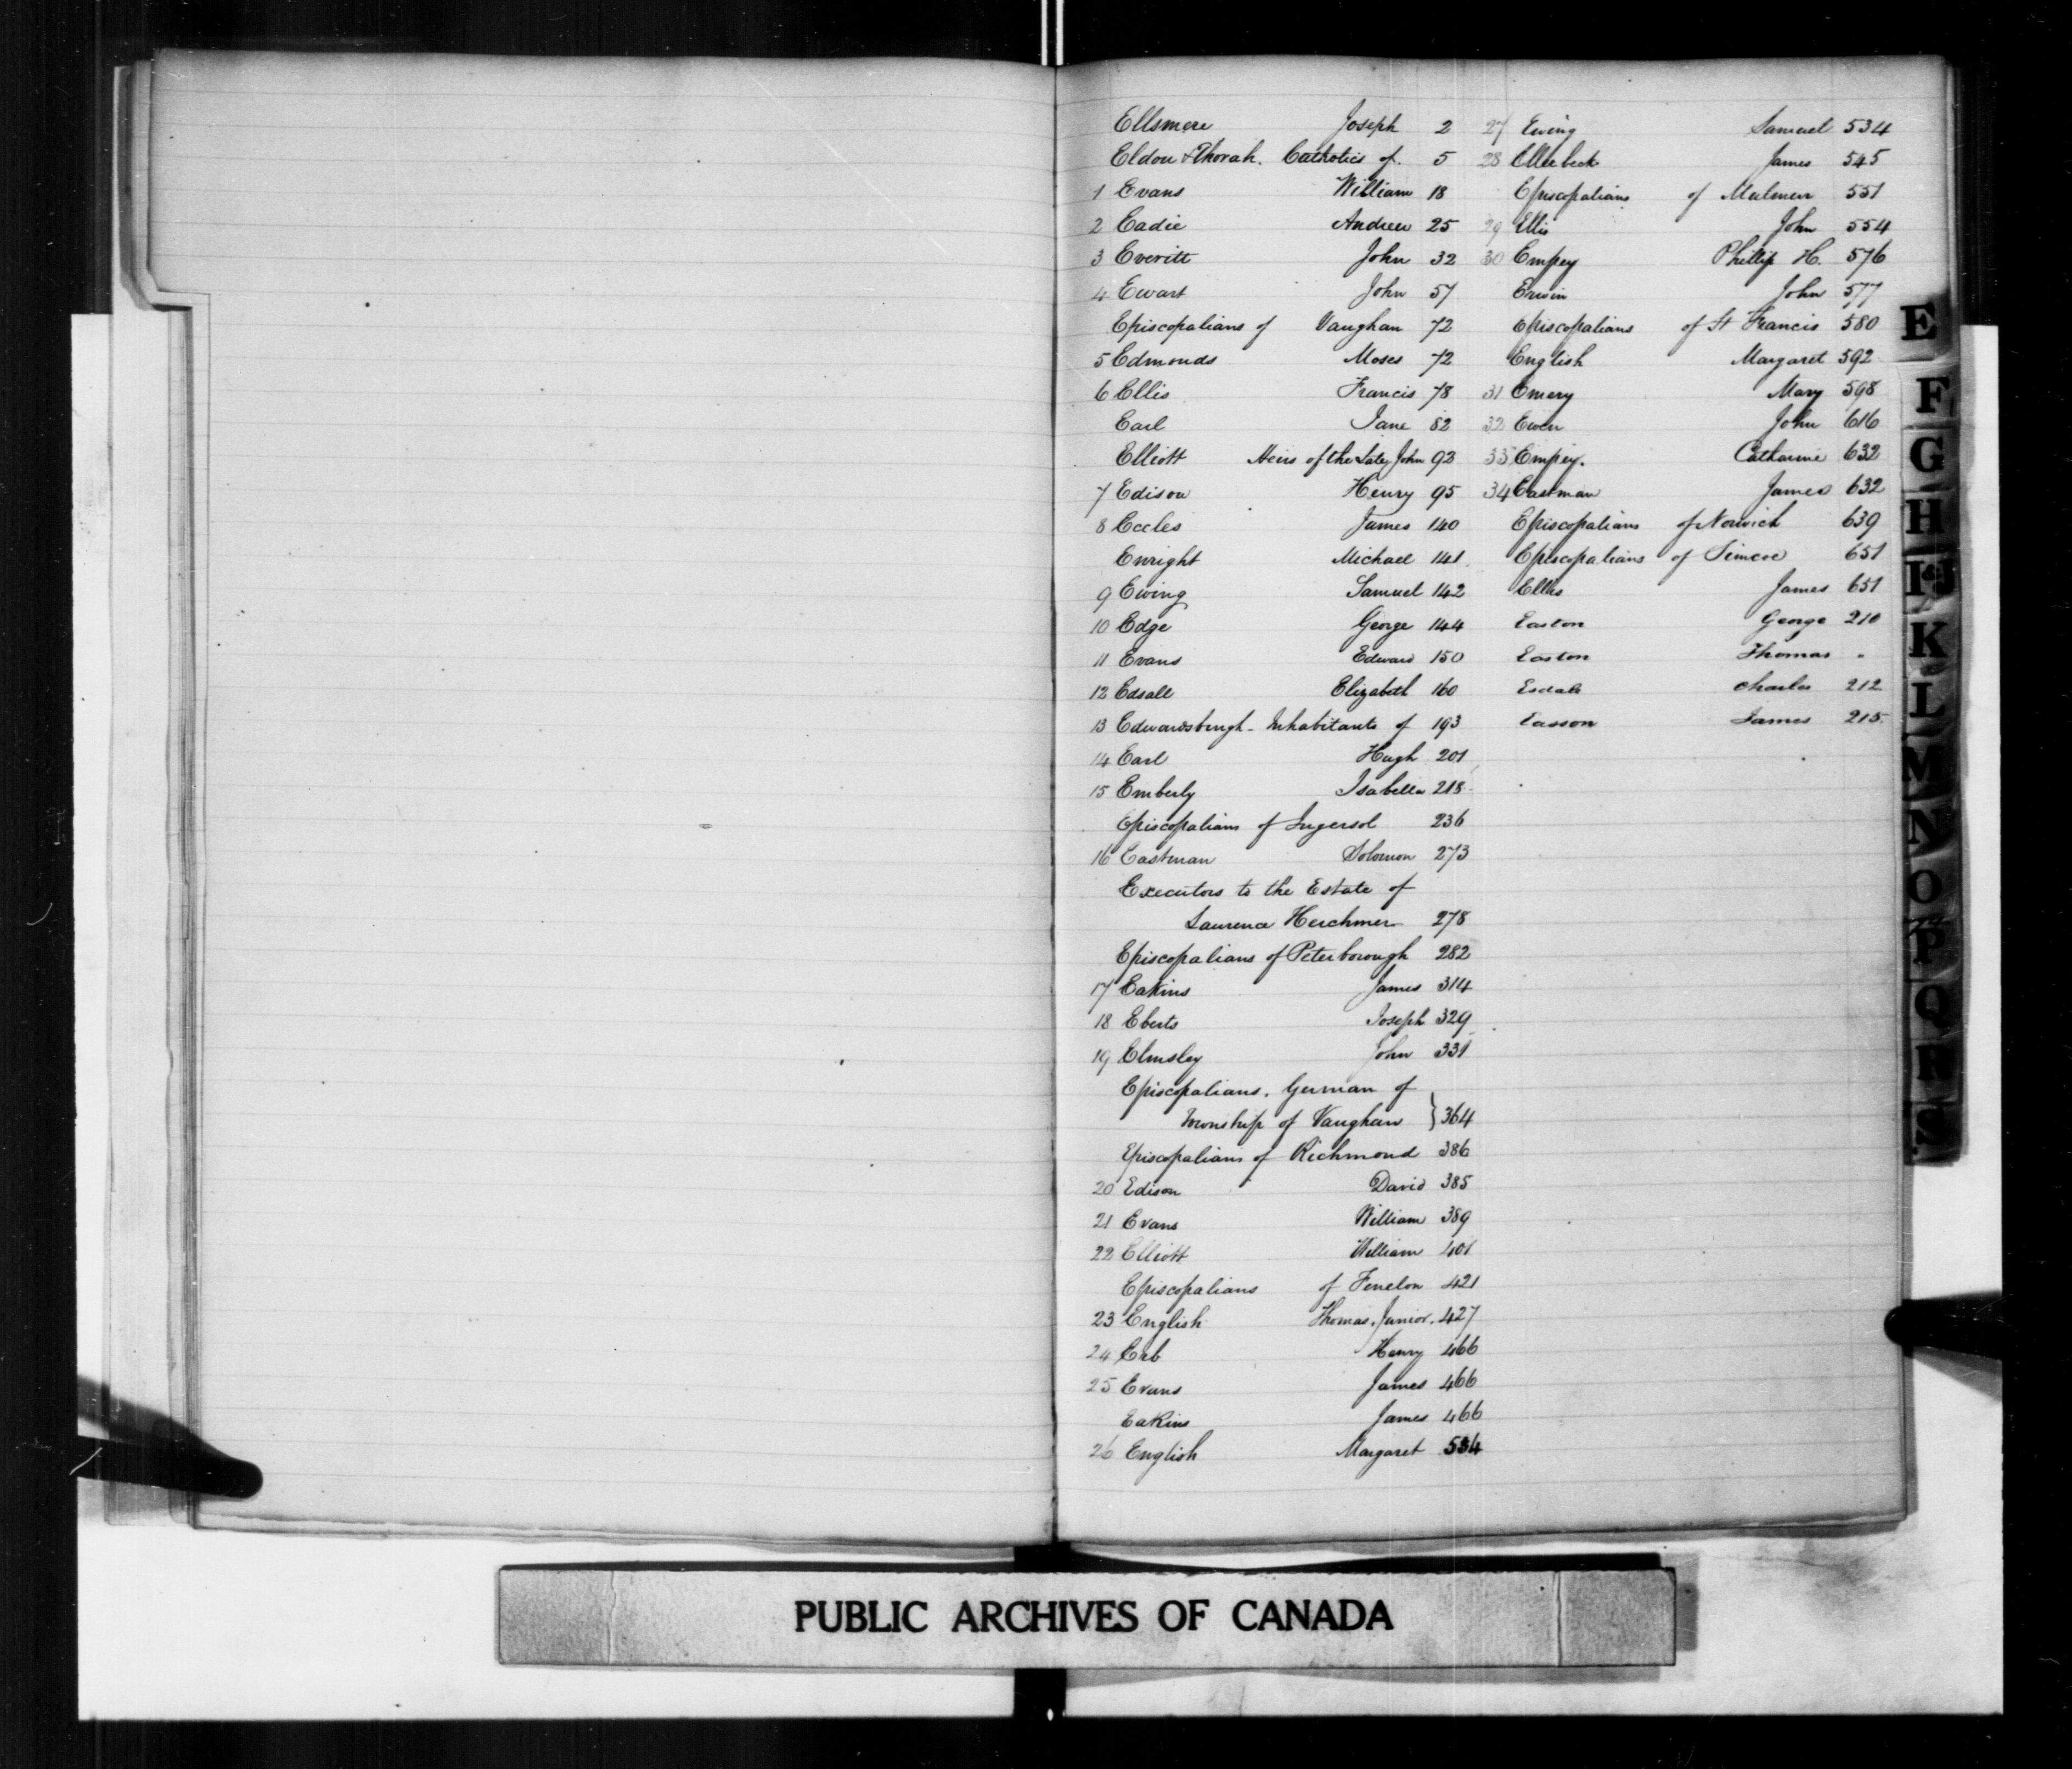 Ellsmere Joseph 2
Eldon & Thorah. Catholics of. 5
1 Evans William 18
2 Eadie Andrew 25
3 Everitt John 32
4 Ewart John 57
Episcopalians of Vaughan 72
5 Edmonds Moses 72
6 Ellis Francis 78
Earl Jane 82
Elliott Heirs of the Late John 92
7 Edison Henry 95
8 Eccles James 140
Enright Michael 141
9 Ewing Samuel 142
10 Edge George 144
11 Evans Edward 150
12 Edsall Elizabeth 160
13 Edwardsburgh - Inhabitants of 193
14 Earl Hugh 201
15 Emberly Isabella 218
Episcopalians of Ingersol 236
16 Eastman Solomon 273
Executors to the Estate of
Laurence Herchmer 278
Episcopalians of Peterborough 282
17 Eakins James 314
18 Eberts Joseph 329
19 Elmsley John 331
Episcopalians. German of
Township of Vaughan } 364
Episcopalians of Richmond 386
20 Edison David 385
21 Evans William 389
22 Elliott William 401
Episcopalians of Fenelon 421
23 English Thomas. Junior. 427
24 Erb Henry 466
25 Evans James 466
Eakins James 466
26 English Margaret 534
27 Ewing Samuel 534
28 Ellerbeck James 545
Episcopalians of Mulmur 551
29 Ellis John 554
30 Empey Phillip H. 576
Erwin John 577
Episcopalians of St Francis 580
English Margaret 592
31 Emery Mary 598
32 Ewen John 616
33 Empey. Catharine 632
34 Eastman James 632
Episcopalians of Norwich 639
Episcopalians of Simcoe 651
Ellis James 651
Easton George 210
Easton Thomas "
Esdale Charles 212
Easson James 215
E
F
G
H
I & J
K
L
M
N
O
P
Q
R
S
PUBLIC ARCHIVES OF CANADA